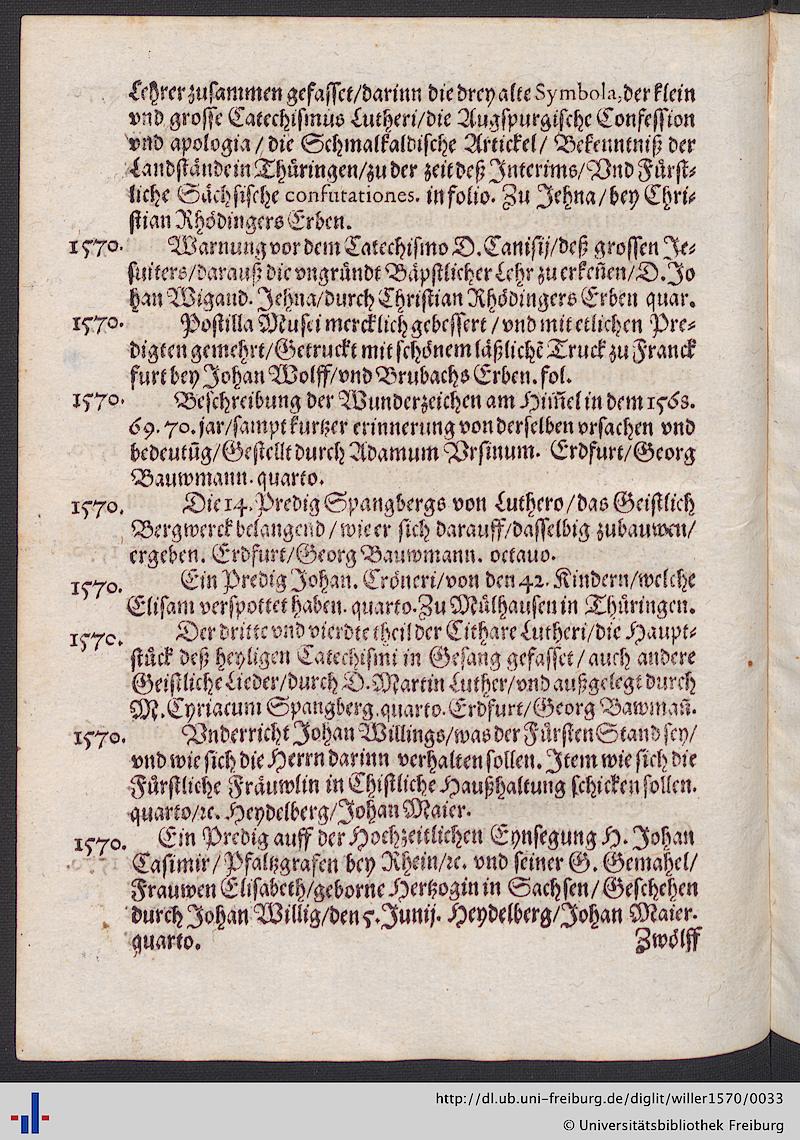 Lehrer zusammen gefasset/darinn die drey alte Symbola, der klein
vnd grosse Catechismus Lutheri/die Augspurgische Confession
vnd apologia/die Schmalkaldische Artickel/ Bekenntniß der
Landstände in Thüringen/zu der zeit deß Interims/Vnd Fürst-
liche Sächsische confutationes. in folio. Zu Jehna/bey Chri-
stian Rhödingers Erben.
1570. Warnung vor dem Catechismo D. Canisij/deß grossen Je-
suiters/darauß die vngründt Bäpstlicher Lehr zu erkeñen/D. Jo
han Wigand. Jehna/durch Christian Rhödingers Erben quar.
1570. Postilla Musei mercklich gebessert/vnd mit etlichen Pre-
digten gemehrt/Getruckt mit schönem läßlichē Truck zu Franck
furt bey Johan Wolff/vnd Brubachs Erben. fol.
1570. Beschreibung der Wunderzeichen am Him̃el in dem 1568.
69. 70. jar/sampt kurtzer erinnerung von derselben vrsachen vnd
bedeutũg/Gestellt durch Adamum Vrsinum. Erdfurt/Georg
Bauwmann. quarto.
1570. Die 14. Predig Spangbergs von Luthero/das Geistlich
Bergwerck belangend/wie er sich darauff/dasselbig zubauwen/
ergeben. Erdfurt/Georg Bauwmann. octauo.
1570. Ein Predig Johan. Cröneri/von den 42. Kindern/welche
Elisam verspottet haben. quarto. Zu Mülhausen in Thüringen.
1570. Der dritte vnd vierdte theil der Cithare Lutheri/die Haupt-
stück deß heyligen Catechismi in Gesang gefasset/auch andere
Geistliche Lieder/durch D. Martin Luther/vnd außgelegt durch
M. Cyriacum Spangberg. quarto. Erdfurt/Georg Bawmañ.
1570. Vnderricht Johan Willings/was der Fürsten Stand sey/
vnd wie sich die Herrn darinn verhalten sollen. Item wie sich die
Fürstliche Fräuwlin in Chistliche Haußhaltung schicken sollen.
quarto/ꝛc. Heydelberg/Johan Maier.
1570. Ein Predig auff der Hochzeitlichen Eynsegung H. Johan
Casimir/Pfaltzgrafen bey Rhein/ꝛc. vnd seiner G. Gemahel/
Frauwen Elisabeth/geborne Hertzogin in Sachsen/Geschehen
durch Johan Willig/den 5. Junij. Heydelberg/Johan Maier.
quarto. Zwölff
http://dl.ub.uni-freiburg.de/diglit/willer1570/0033
© Universitätsbibliothek Freiburg